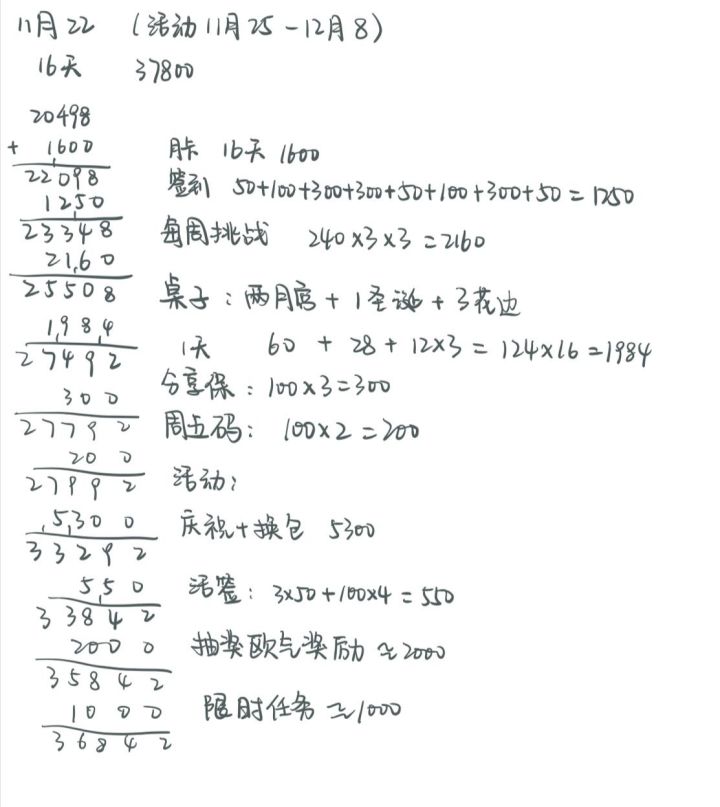 11月22 (活动11月25-12月8)
16天 37800
20498
+ 1600 月卡 16天 1600
22098 签到 50+100+300+300+50+100+300+50=1250
1250
23348 每周挑战 240×3×3=2160
2160
25508 桌子:两月宫+1圣诞+3花边
1984 1天 60+28+12×3=124×16=1984
27492
300 分享保:100×3=300
27792 周五码:100×2=200
200
27992 活动:
5300 庆祝+换包 5300
33292
550 活签:3×50+100×4=550
33842
2000 抽奖欧气奖励≈2000
35842
1000 限时任务≈1000
36842